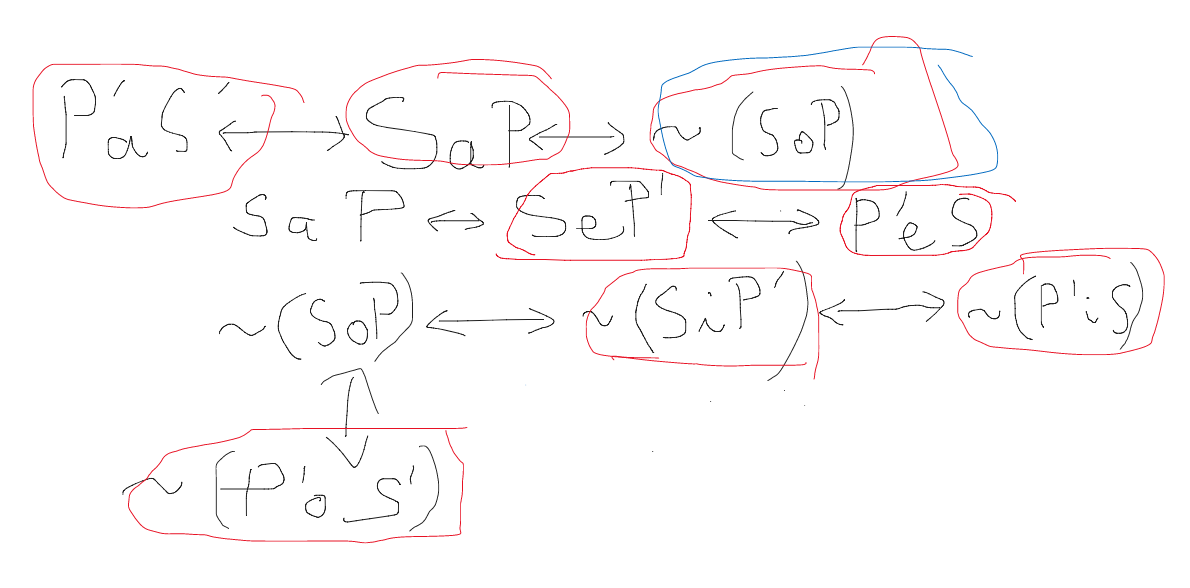 P'aS' ↔ SaP ↔ ~(SoP)
SaP ↔ SeP' ↔ P'eS
~(SoP) ↔ ~(SiP') ↔ ~(P'iS)
↕
~(P'oS')